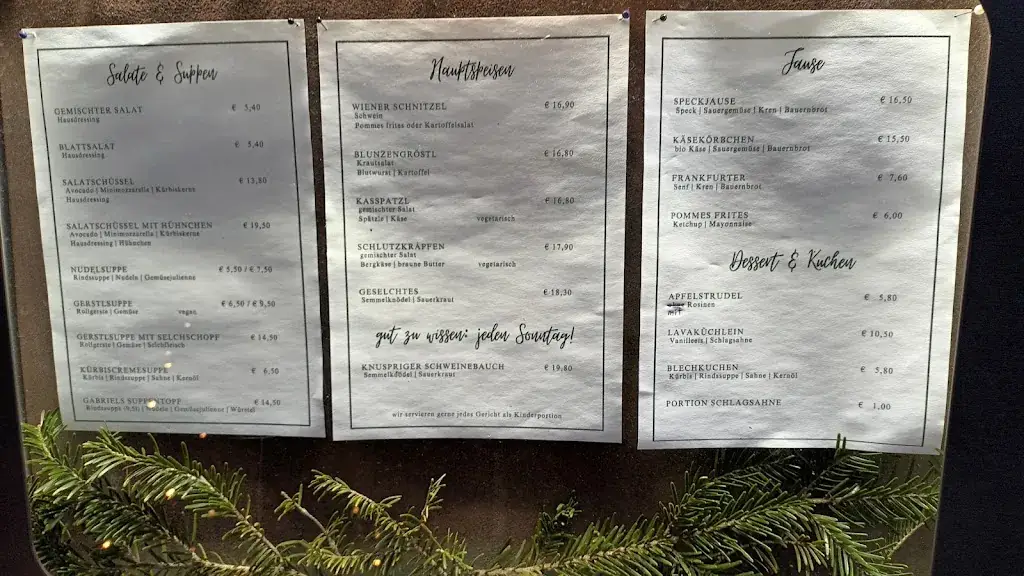 Salate & Suppen
GEMISCHTER SALAT € 5,40
Hausdressing
BLATTSALAT € 5,40
Hausdressing
SALATSCHÜSSEL € 13,80
Avocado | Minimozzarella | Kürbiskerne
Hausdressing
SALATSCHÜSSEL MIT HÜHNCHEN € 19,50
Avocado | Minimozzarella | Kürbiskerne
Hausdressing | Hühnchen
NUDELSUPPE € 5,50 / € 7,50
Rindssuppe | Nudeln | Gemüsejulienne
GERSTLSUPPE € 6,50 / € 9,50
Rollgerste | Gemüse vegan
GERSTLSUPPE MIT SELCHSCHOPF € 14,50
Rollgerste | Gemüse | Selchfleisch
KÜRBISCREMESUPPE € 6,50
Kürbis | Rindssuppe | Sahne | Kernöl
GABRIELS SUPPENTOPF € 14,50
Rindssuppe | Nudeln | Gemüsejulienne | Würstel
Hauptspeisen
WIENER SCHNITZEL € 16,90
Schwein
Pommes frites oder Kartoffelsalat
BLUNZENGRÖSTL € 16,80
Krautsalat
Blutwurst | Kartoffel
KASSPATZL € 16,80
gemischter Salat
Spätzle | Käse vegetarisch
SCHLUTZKRAPFEN € 17,90
gemischter Salat
Bergkäse | braune Butter vegetarisch
GESELCHTES € 18,30
Semmelknödel | Sauerkraut
gut zu wissen: jeden Sonntag!
KNUSPRIGER SCHWEINEBAUCH € 19,80
Semmelknödel | Sauerkraut
wir servieren gerne jedes Gericht als Kinderportion
Jause
SPECKJAUSE € 16,50
Speck | Sauergemüse | Kren | Bauernbrot
KÄSEKÖRBCHEN € 15,50
bio Käse | Sauergemüse | Bauernbrot
FRANKFURTER € 7,60
Senf | Kren | Bauernbrot
POMMES FRITES € 6,00
Ketchup | Mayonnaise
Dessert & Kuchen
APFELSTRUDEL € 5,80
ohne Rosinen
mit
LAVAKÜCHLEIN € 10,50
Vanilleeis | Schlagsahne
BLECHKUCHEN € 5,80
Kürbis | Rindssuppe | Sahne | Kernöl
PORTION SCHLAGSAHNE € 1,00